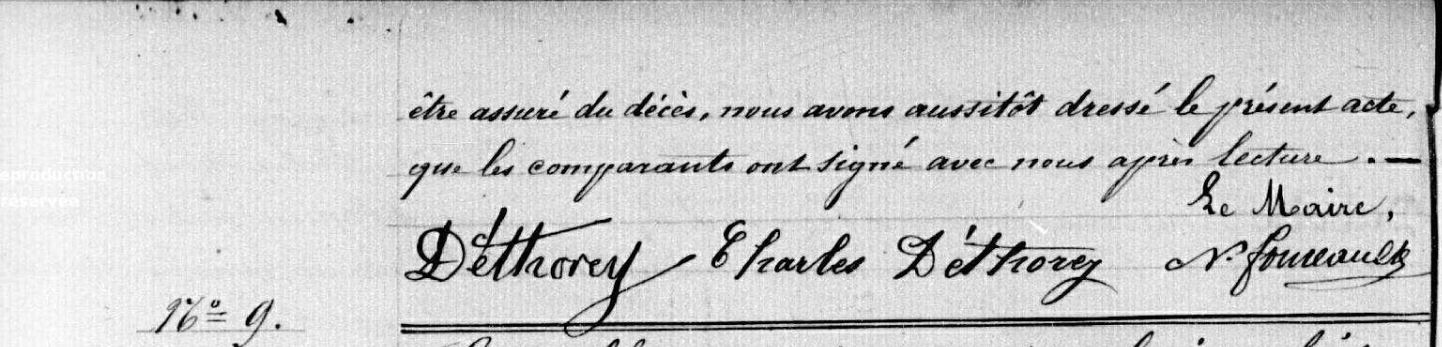 être assuré du décès, nous avons aussitôt dressé le présent acte,
que les comparants ont signé avec nous après lecture . —
eproduction
réservée
Le Maire,
Déthorey Charles Déthorey N. Foureault
Nº 9.